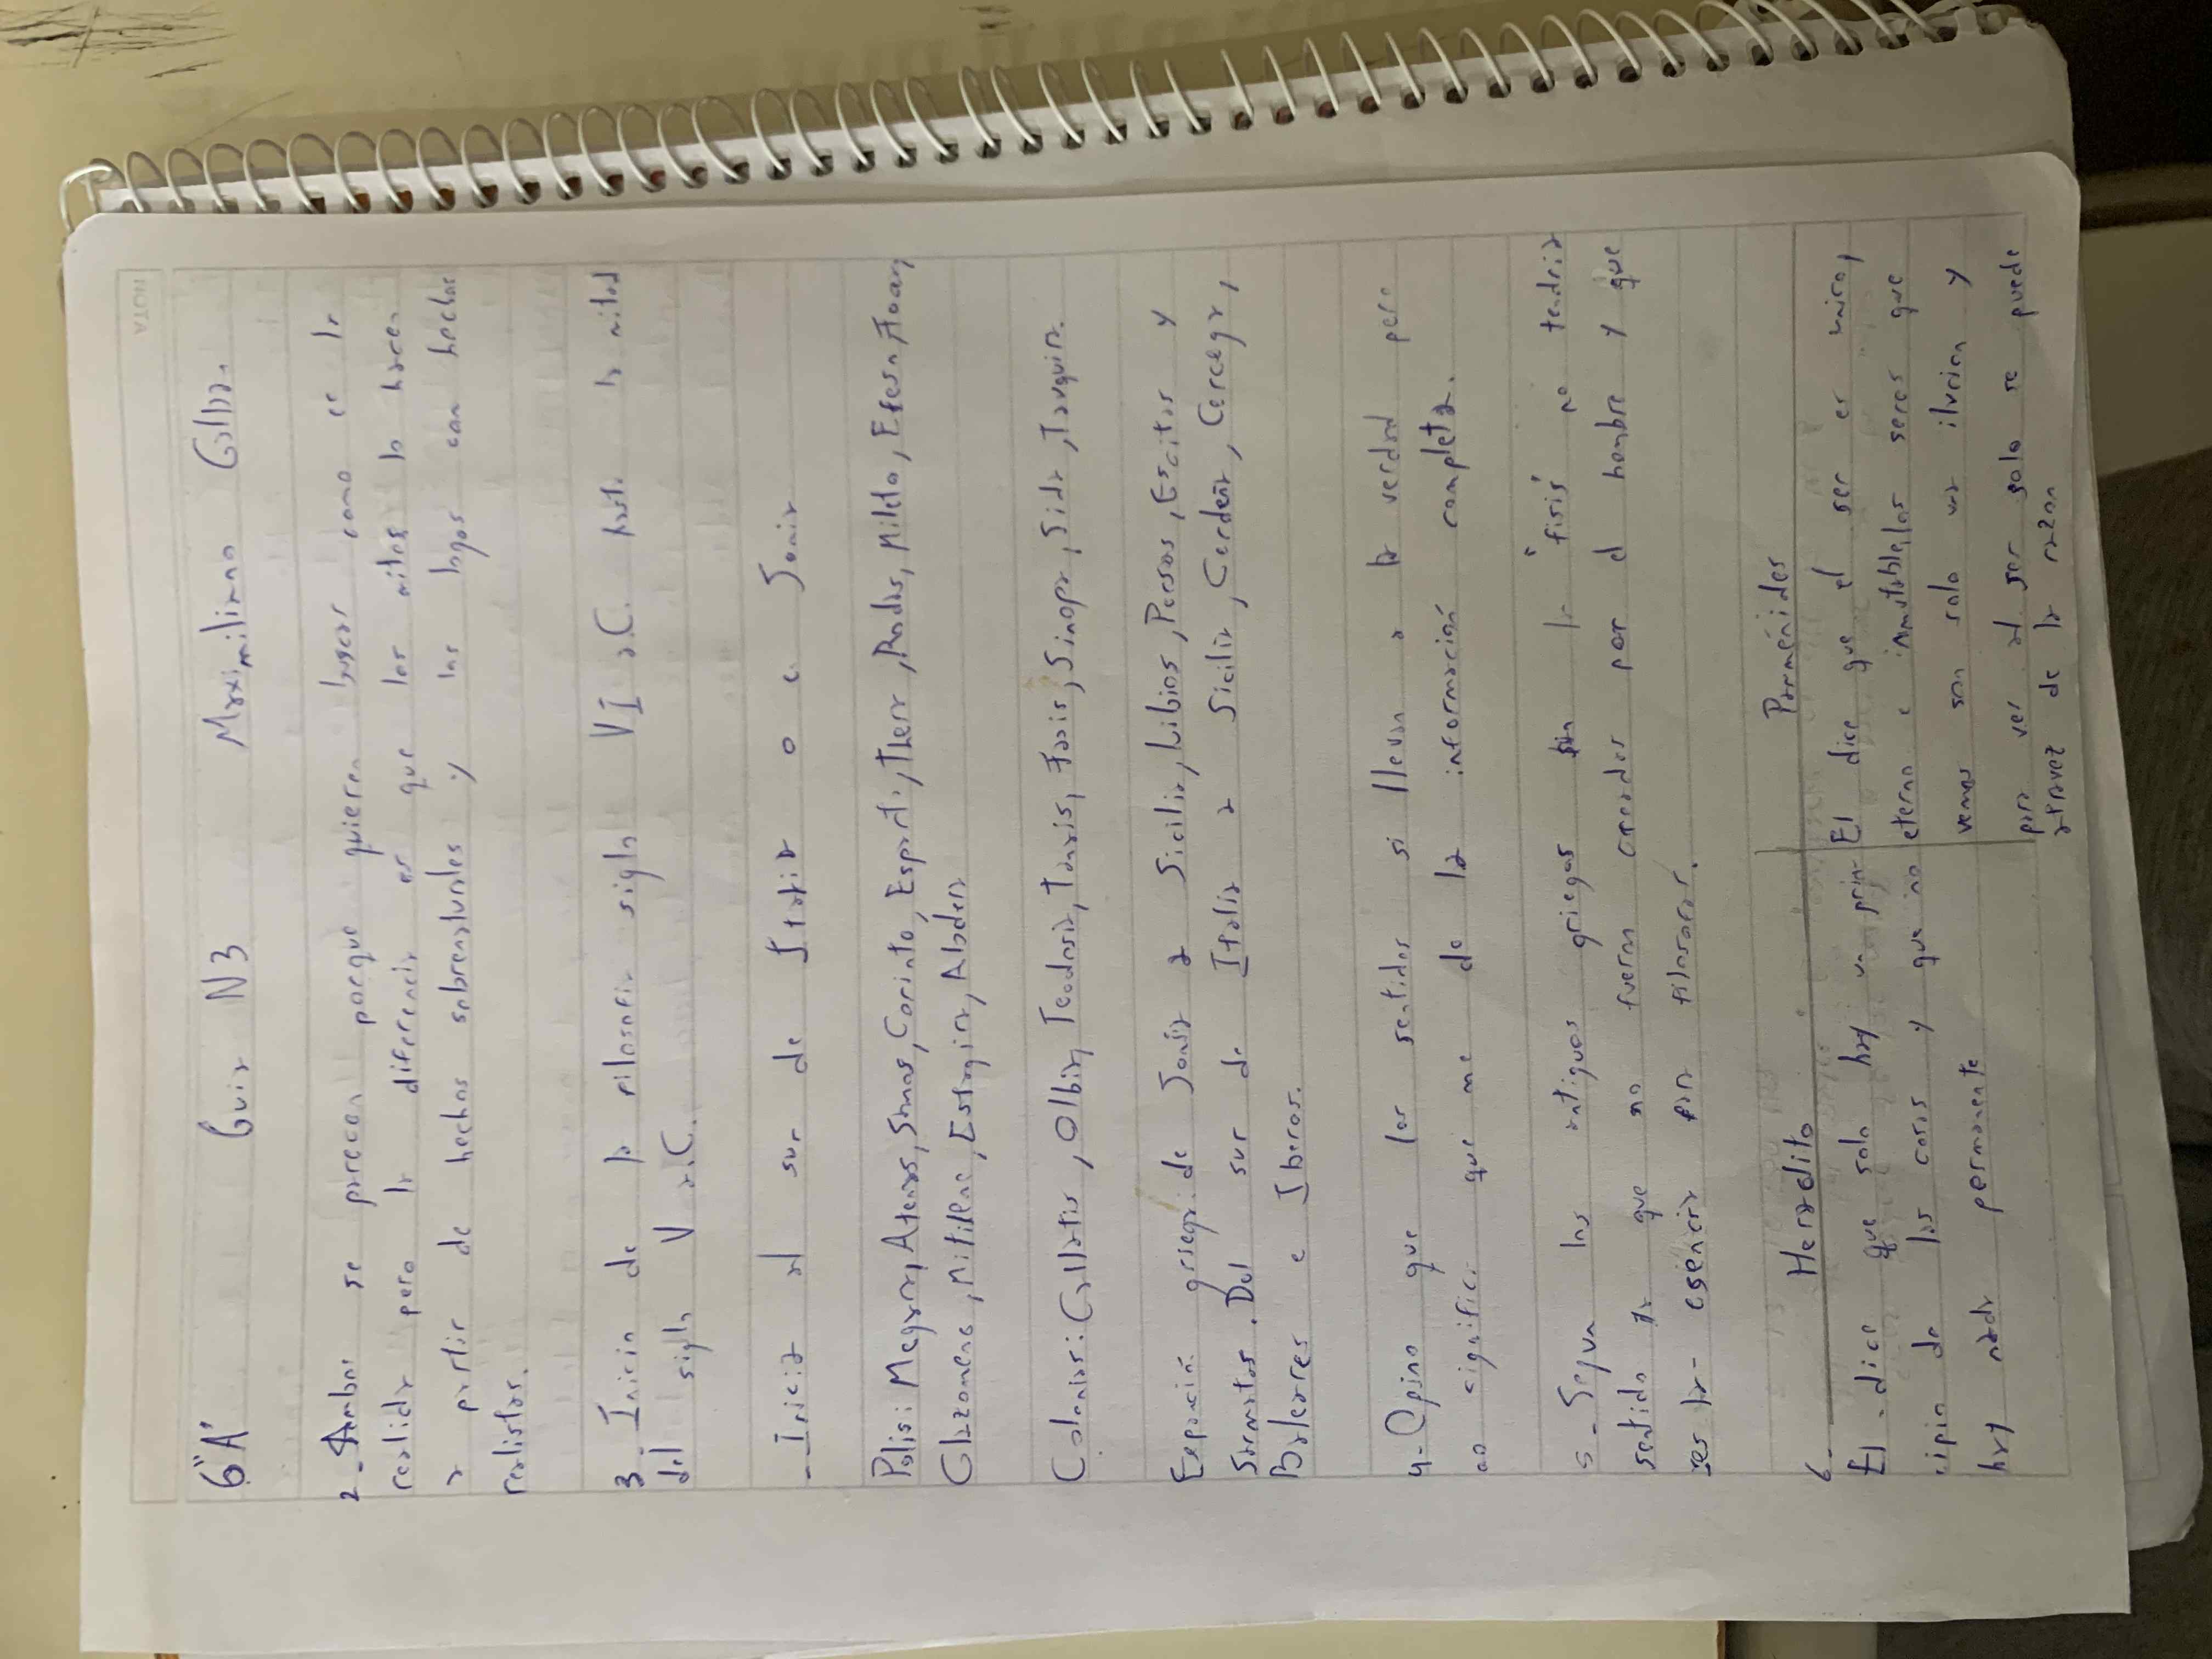 NOTA
6"A" Guia N3 Maximiliano Collao.
2-Ambos se parecen porque quieren buscar como es la
realida pero la diferencia es que los mitos lo hacen
a partir de hechos sobrenaturales y los logos con hechos
realistas.
3-Inicio de la filosofia siglo VI a.C. hasta la mitad
del siglo V a.C.
-Inicia al sur de Italia o e Jonia
Polis: Megara, Atenas, Smos, Corinto, Esparta, Thera, Rodas, Mileto, Efeso, Foan,
Clazomene, Mitilene, Estagira, Abdera
Colonias: Callatis, Olbia, Teodosia, Tanais, Fasis, Sinopa, Side, Tauquira.
Expación griega: de Jonia a Sicilia, Libios, Persas, Escitas y
Sarmatas. Del sur de Italia a Sicilia, Cerdeña, Corcega,
Baleares e Iberos.
4-Opino que los sentidos si llevan a la verdad pero
no significa que me de la información completa.
5-Segun los antiguos griegos sin la "fisis" no tendria
sentido ya que no fueron creados por el hombre y que
es la esencia para filosofar.
6- Heraclito Parménides
El dice que solo hay un prin- El dice que el ser es unico,
cipio de las cosas y que no eterno e inmutable, los seres que
hay nada permanente vemos son solo una ilusion y
para ver al ser solo se puede
atravez de la razon